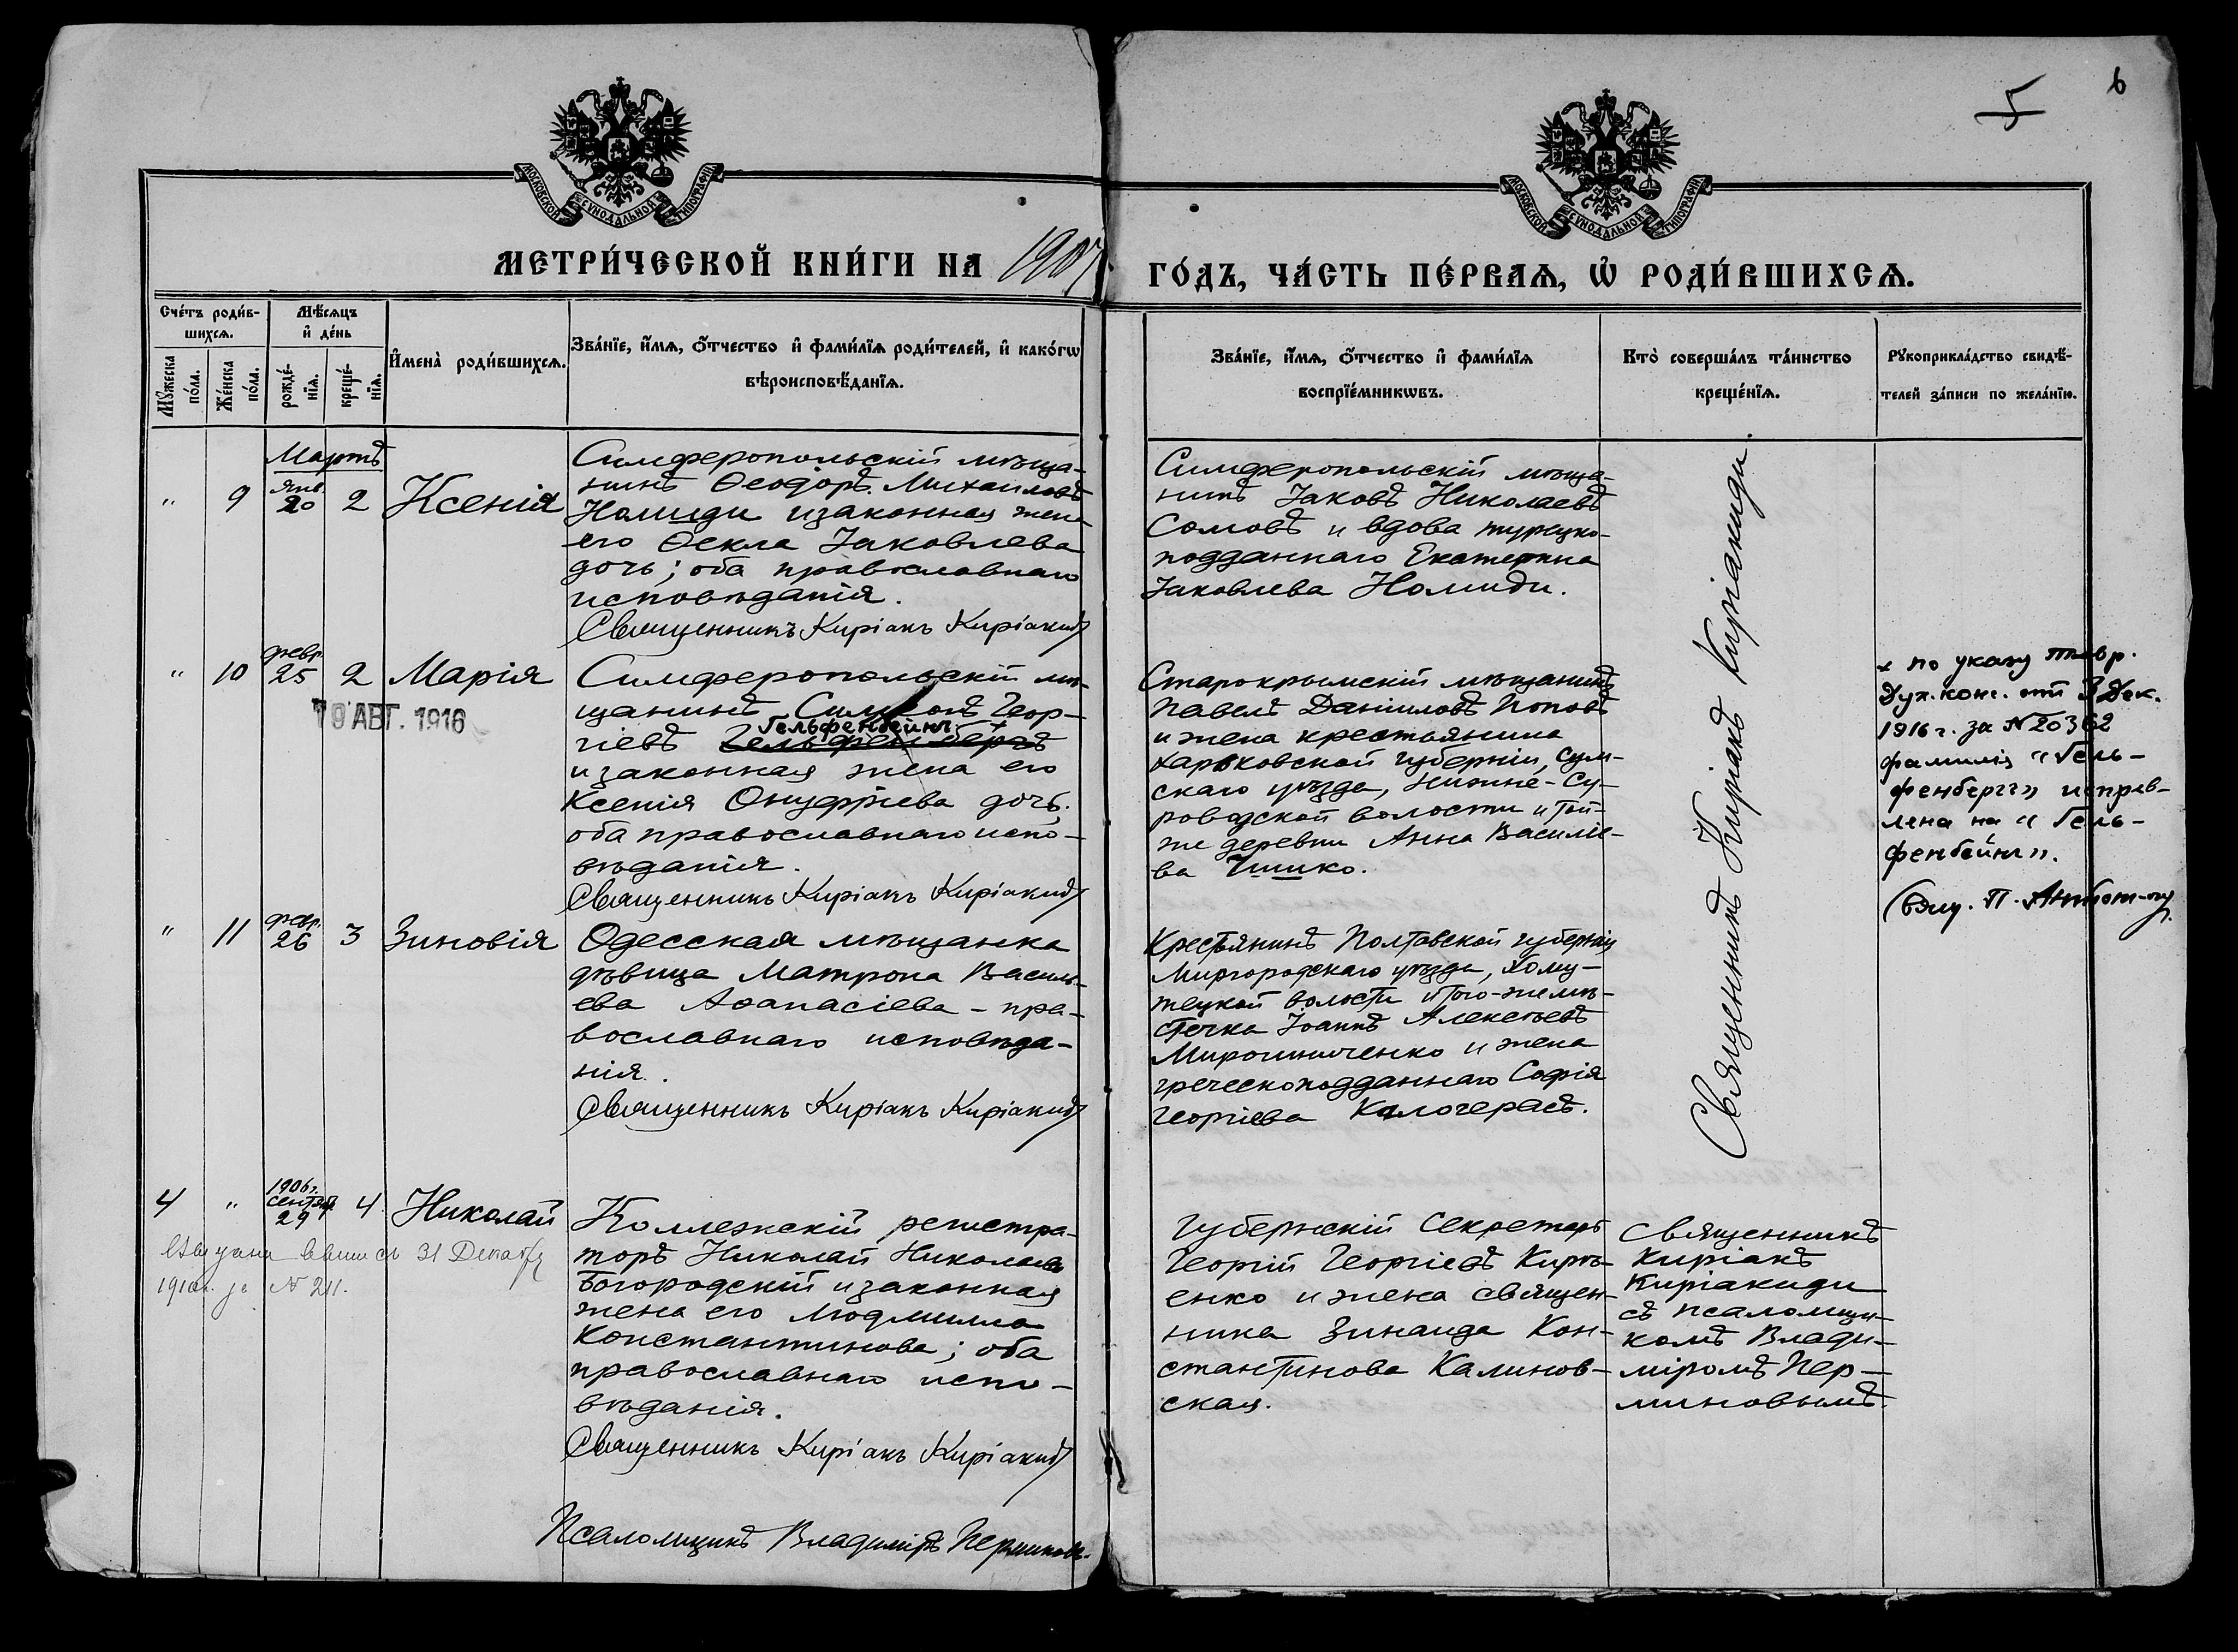 5
6
МОСКОВСКОЙ СѴНОДАЛЬНОЙ ТИПОГРАФІИ
МОСКОВСКОЙ СѴНОДАЛЬНОЙ ТИПОГРАФІИ
МЕТРИ́ЧЕСКОЙ КНИ́ГИ НА 1907
ГО́ДЪ, ЧА́СТЬ ПЕ́РВАѦ, Ѡ҆ РОДИ́ВШИХСѦ.
Сче́тъ роди́в-
шихсѧ.
Мꙋ́жеска
по́ла.
Же́нска
по́ла.
Мѣ́сѧцъ
и҆ де́нь
рожде́-
нїѧ.
креще́-
нїѧ.
И҆мена̀ роди́вшихсѧ.
Зва́нїе, и҆́мѧ, ѻ҆́тчество и҆ фами́лїѧ роди́телей, и҆ како́гѡ
вѣроисповѣ́данїѧ.
Зва́нїе, и҆́мѧ, ѻ҆́тчество и҆ фами́лїѧ
воспрїе́мникѡвъ.
Кто̀ соверша́лъ та́инство
креще́нїѧ.
Рꙋкоприкла́дство свидѣ́-
телей за́писи по жела́нїю.
Мартъ
" 9 янв. 20 2 Ксенія
Симферопольскій мѣща-
нинъ Ѳеодоръ Михаиловъ
Номиди и законная жена
его Ѳекла Іаковлева
дочь; оба православнаго
исповѣданія.
Священникъ Киріакъ Киріакиди
Симферопольскій мѣща-
нинъ Іаковъ Николаевъ
Сомовъ и вдова турецко-
подданнаго Екатерина
Іаковлева Номиди.
" 10 февр. 25 2 Марія
19 АВГ. 1916
Симферопольскій мѣ-
щанинъ Симеонъ Геор-
Гельфенбейнъ
гіевъ Гельфенбергъ
и законная жена его
Ксенія Онуфріева дочь;
оба православнаго испо-
вѣданія.
Священникъ Киріакъ Киріакиди
Старокрымскій мѣщанинъ
Павелъ Даніиловъ Поповъ
и жена крестьянина
Харьковской губерніи, Сум-
скаго уѣзда, Нижне-Сы-
роватской волости и той-
же деревни Анна Василье-
ва Чишко.
х по указу тавр.
Дух. конс. отъ 3 Дек.
1916 г. за № 20362
фамилія "Гель-
фенбергъ" исправ-
лена на "Гель-
фенбейнъ".
" 11 февр. 26 3 Зиновія
Одесская мѣщанка
дѣвица Матрона Василь-
ева Аѳанасіева - пра-
вославнаго исповѣда-
нія.
Священникъ Киріакъ Киріакиди
Крестьянинъ Полтавской губерніи
Миргородскаго уѣзда, Хому-
тецкой волости и того-же мѣ-
стечка Іоаннъ Алексѣевъ
Мирошниченко и жена
греческоподданнаго Софія
Георгіева Калогерасъ.
Священникъ Киріакъ Киріакиди
4 " 1906 г. Сентяб. 29 4 Николай
31 Декабр
1910 г. за № 211.
Коллежскій регистра-
торъ Николай Николаевъ
Богородскій и законная
жена его Людмилла
Константинова; оба
православнаго испо-
вѣданія.
Священникъ Киріакъ Киріакиди
Губернскій Секретарь
Георгій Георгіевъ Кирѣ-
енко и жена священ-
ника Зинаида Кон-
стантинова Калинов-
ская.
Священникъ
Киріакъ
Киріакиди
съ псаломщи-
комъ Влади-
міромъ Пер-
миновымъ.
Псаломщикъ Владиміръ Перминовъ.